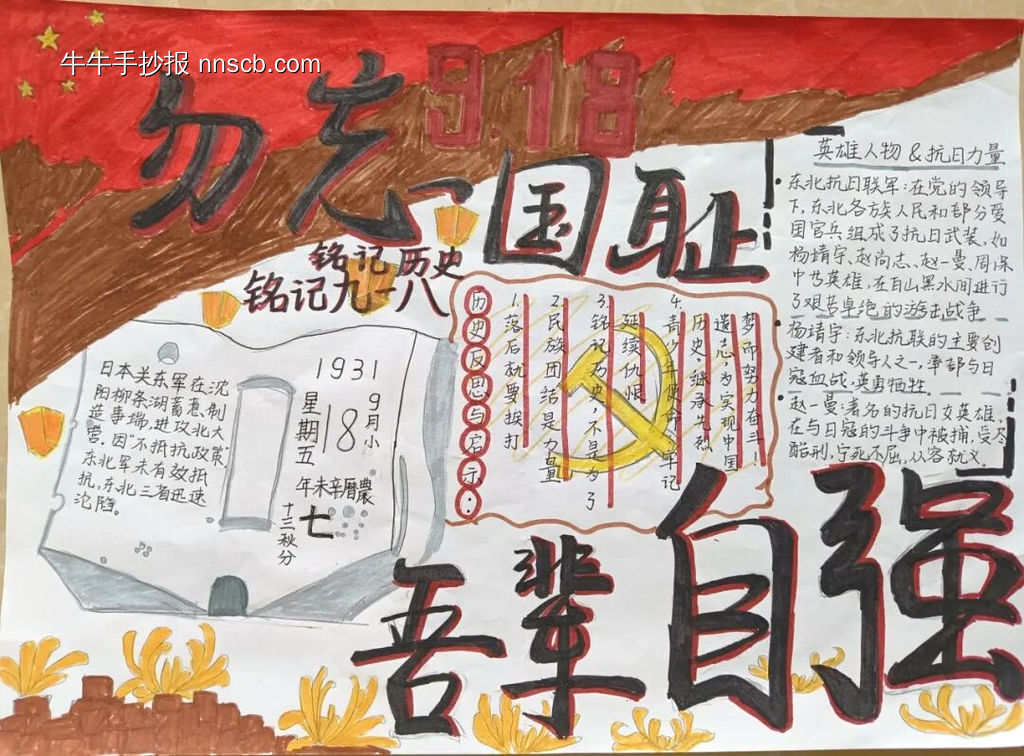 牛牛手抄报 nnscb.com
勿忘国耻
9.18
铭记历史
铭记九一八
英雄人物&抗日力量
东北抗日联军:在党的领导
下,东北各族人民和部分爱
国官兵组成了抗日武装,如
杨靖宇、赵尚志、赵一曼、周保
中等英雄,在白山黑水间进行
了艰苦卓绝的游击战争
杨靖宇:东北抗联的主要创
建者和领导人之一,率部与日
寇血战,英勇牺牲。
赵一曼:著名的抗日女英雄,
在与日寇的斗争中被捕,受尽
酷刑,宁死不屈,从容就义。
历史反思与启示:
1.落后就要挨打
2.民族团结是力量
3.铭记历史,不是为了
延续仇恨
4.青少年使命:牢记
历史,继承先烈
遗志,为实现中国
梦而努力奋斗!
日本关东军在沈
阳柳条湖蓄意制
造事端,进攻北大
营。因"不抵抗政策"
东北军未有效抵
抗,东北三省迅速
沦陷。
1931
9月小
18
星期五
農曆辛未年
七
十三秋分
吾辈自强